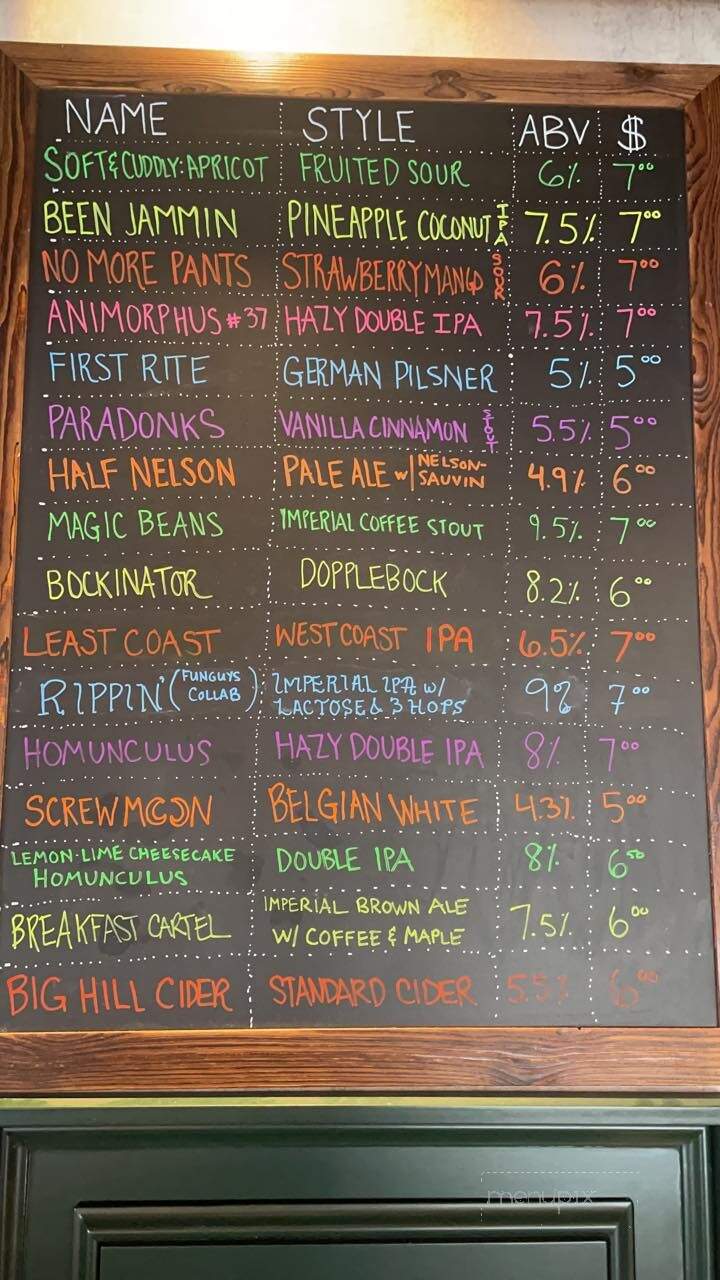 NAME STYLE ABV $
SOFT & CUDDLY: APRICOT FRUITED SOUR 6% 7.00
BEEN JAMMIN PINEAPPLE COCONUT IPA 7.5% 7.00
NO MORE PANTS STRAWBERRY MANGO SOUR 6% 7.00
ANIMORPHUS #37 HAZY DOUBLE IPA 7.5% 7.00
FIRST RITE GERMAN PILSNER 5% 5.00
PARADONKS VANILLA CINNAMON STOUT 5.5% 5.00
HALF NELSON PALE ALE w/ NELSON-SAUVIN 4.9% 6.00
MAGIC BEANS IMPERIAL COFFEE STOUT 9.5% 7.00
BOCKINATOR DOPPLEBOCK 8.2% 6.00
LEAST COAST WEST COAST IPA 6.5% 7.00
RIPPIN' (FUNGUYS COLLAB) IMPERIAL IPA w/ LACTOSE & 3 HOPS 9% 7.00
HOMUNCULUS HAZY DOUBLE IPA 8% 7.00
SCREWMOON BELGIAN WHITE 4.3% 5.00
LEMON-LIME CHEESECAKE HOMUNCULUS DOUBLE IPA 8% 6.50
BREAKFAST CARTEL IMPERIAL BROWN ALE W/ COFFEE & MAPLE 7.5% 6.00
BIG HILL CIDER STANDARD CIDER 5.5% 6.00
menupix